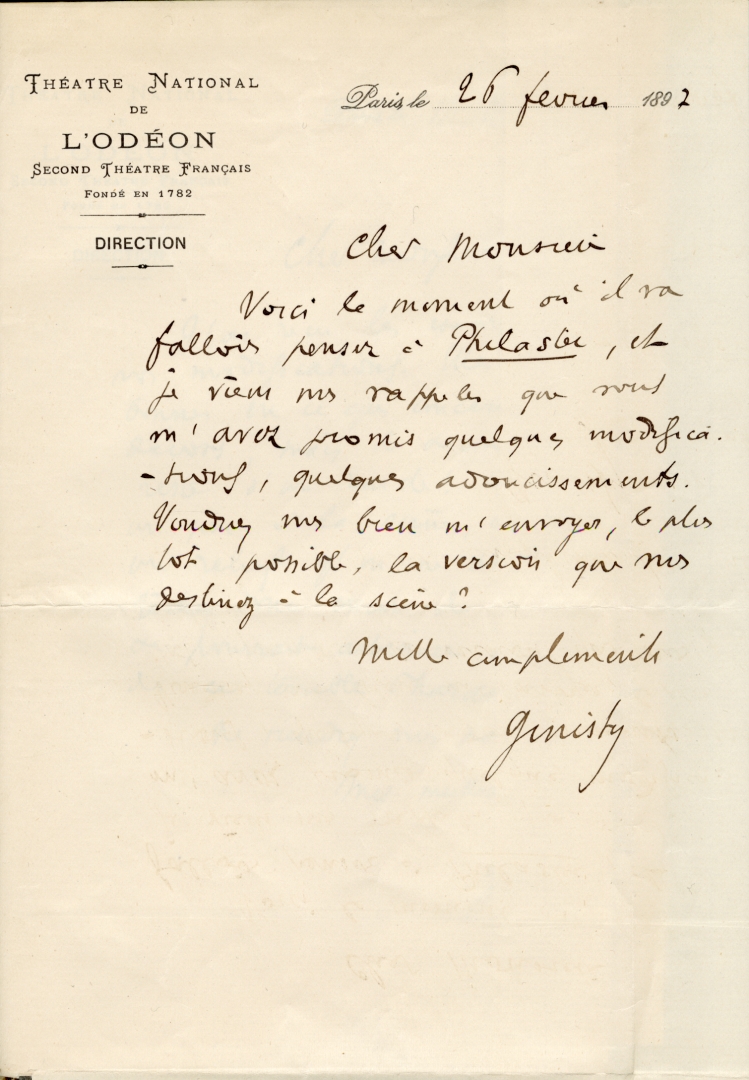 THÉATRE NATIONAL
DE
L'ODÉON
SECOND THÉATRE FRANÇAIS
FONDÉ EN 1782
DIRECTION
Paris, le 26 fevrier 1897
Cher Monsieur
Voici le moment où il va
falloir penser à Philaster, et
je viens vous rappeler que vous
m'avez promis quelques modifica-
-tions, quelques adoucissements.
Voudrez vous bien m'envoyer, le plus
tot possible, la version que vous
destinez à la scène ?
Mille compliments
Ginisty